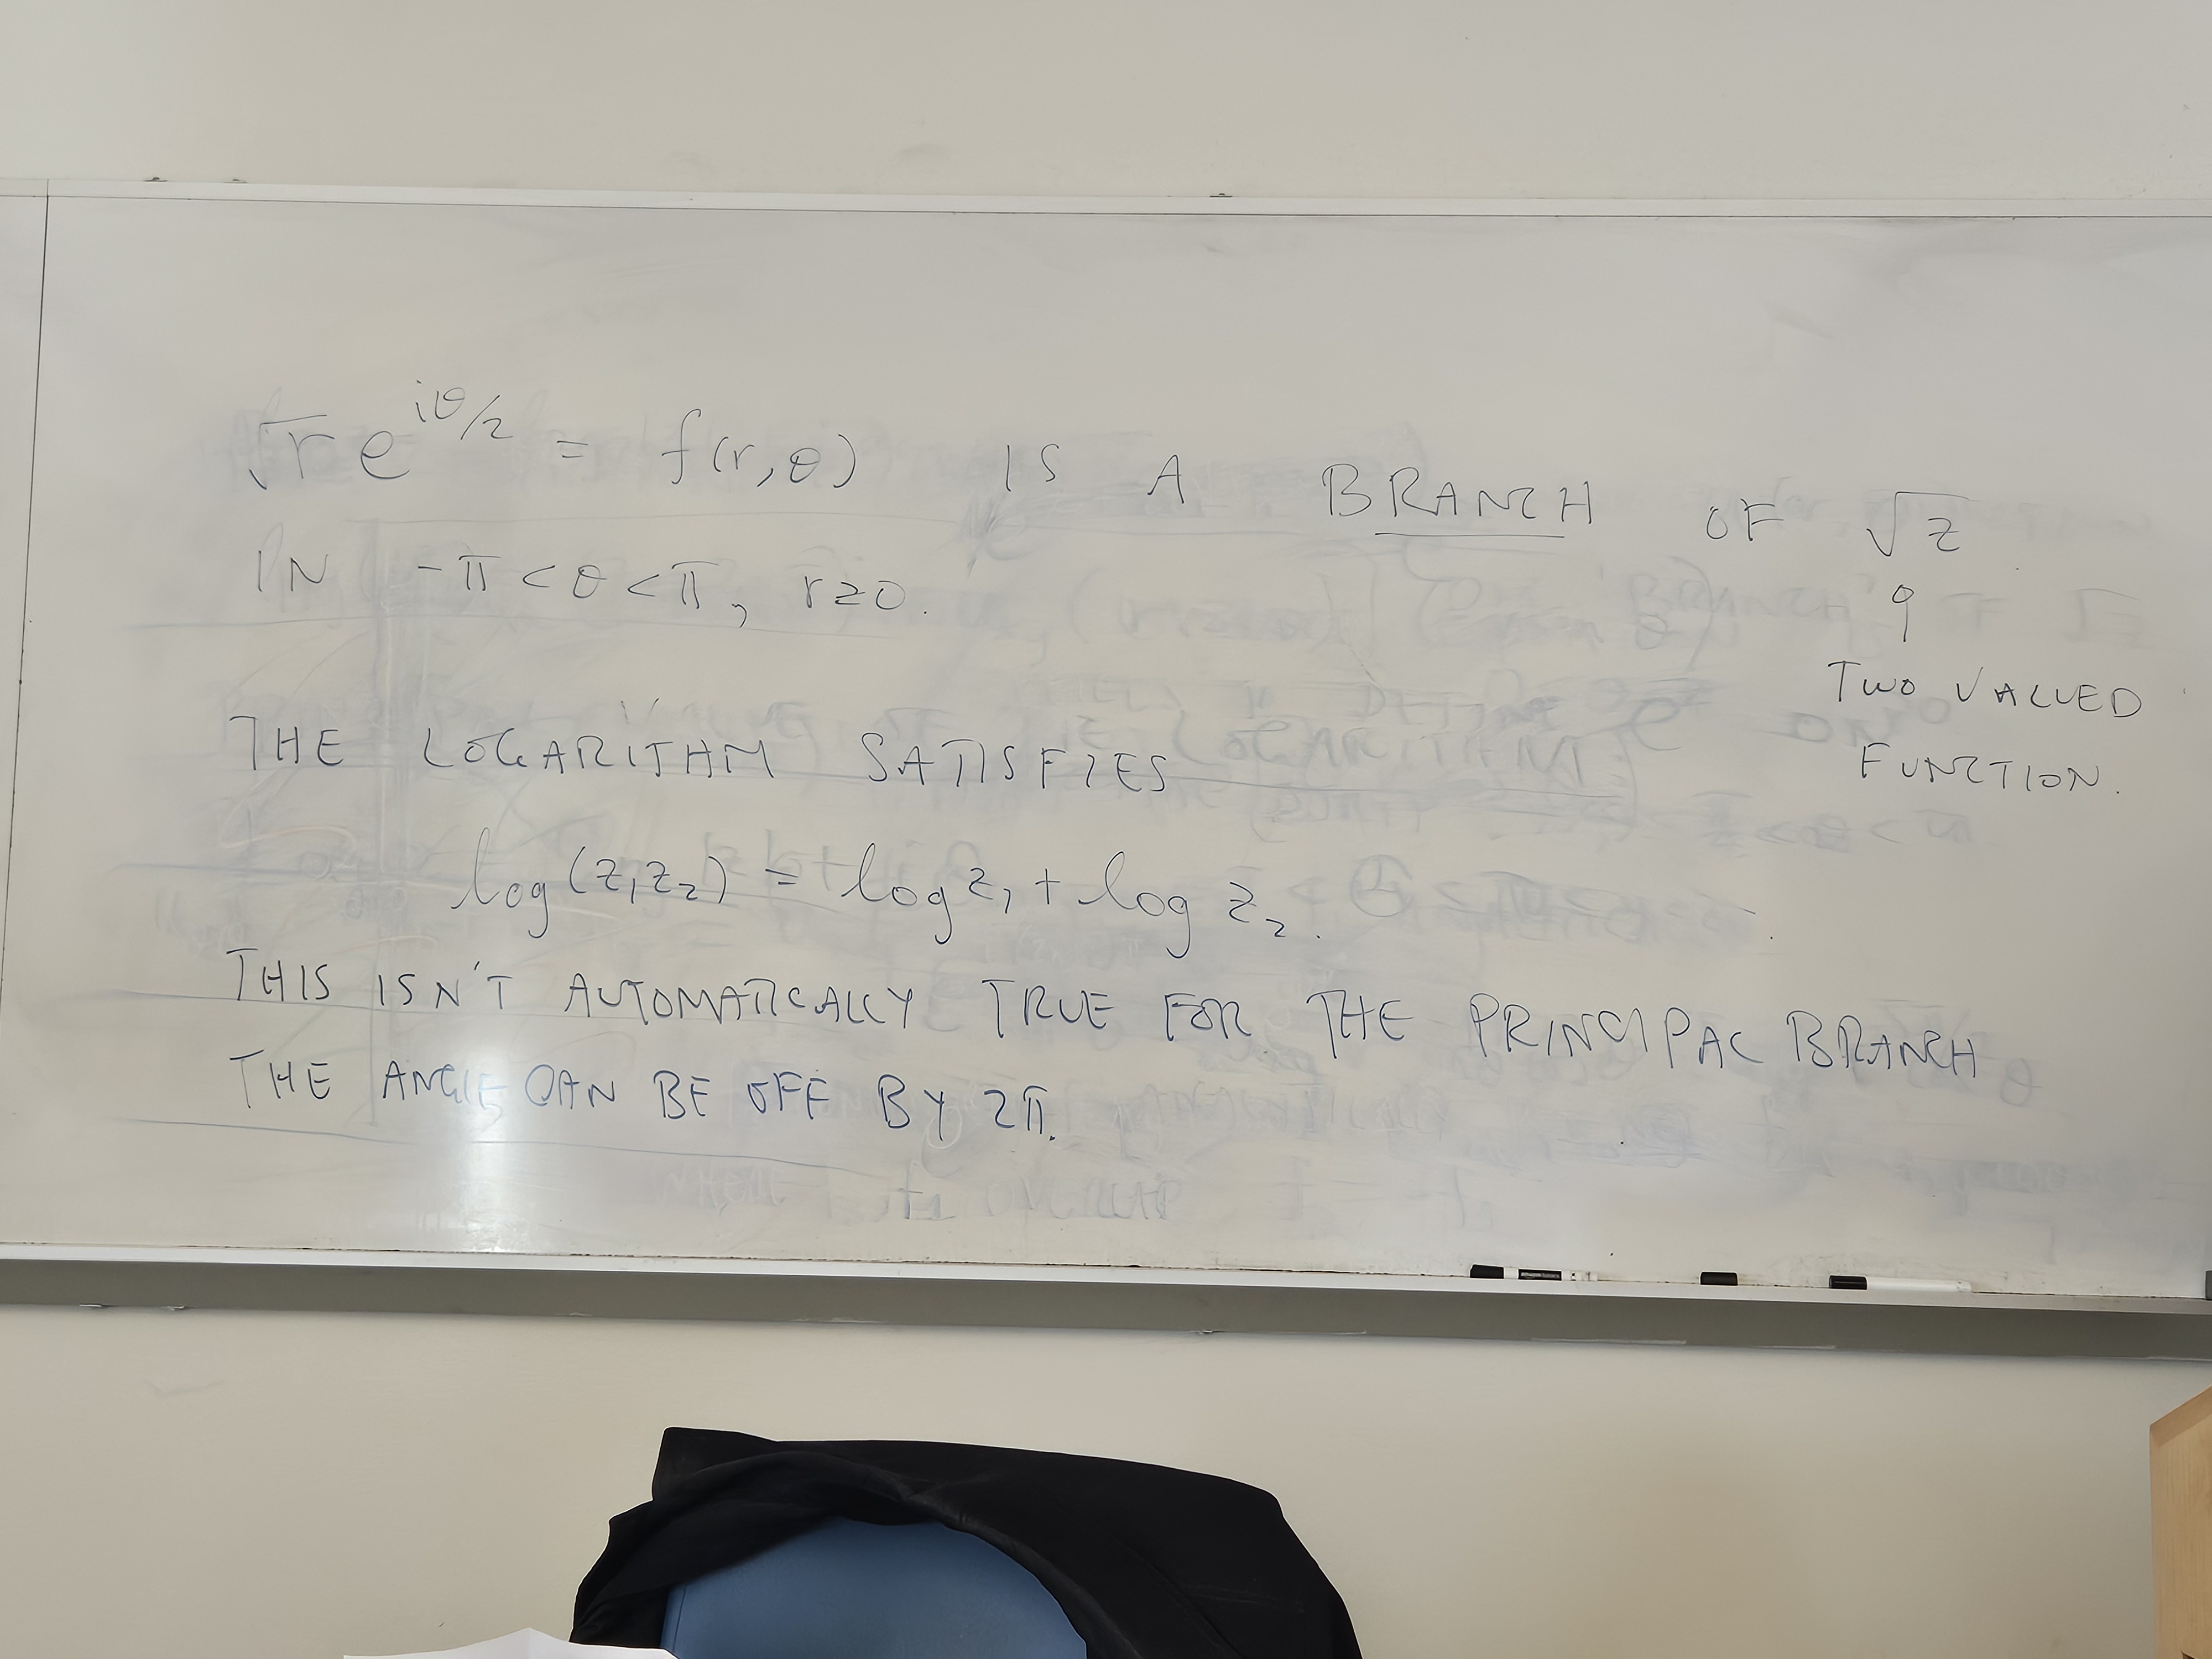 √r e^{iθ/2} = f(r,θ) IS A BRANCH OF √z
IN -π < θ < π, r≥0.
TWO VALUED
FUNCTION.
THE LOGARITHM SATISFIES
log(z₁z₂) = log z₁ + log z₂.
THIS ISN'T AUTOMATICALLY TRUE FOR THE PRINCIPAL BRANCH
THE ANGLE CAN BE OFF BY 2π.